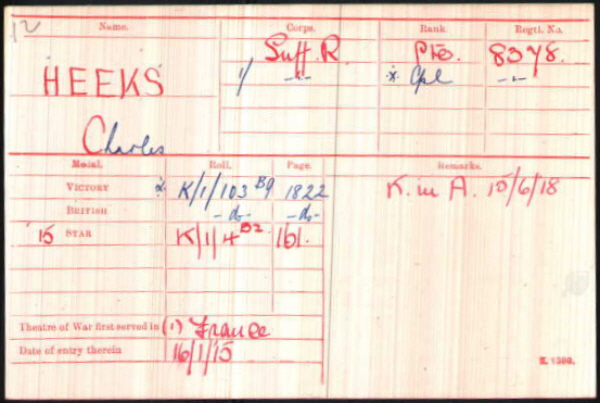 12
Name. Corps. Rank Regtl. No.
HEEKS Suff. R. Pte. 8378.
1/ -"- * Cpl -"-
Charles
Medal. Roll. Page. Remarks.
VICTORY * K/1/103 B9 1822 K. in A. 15/6/18
BRITISH -do- -do-
'15 STAR K/1/4 B2 161.
Theatre of War first served in (1) France
Date of entry therein 16/1/15
K. 1380.